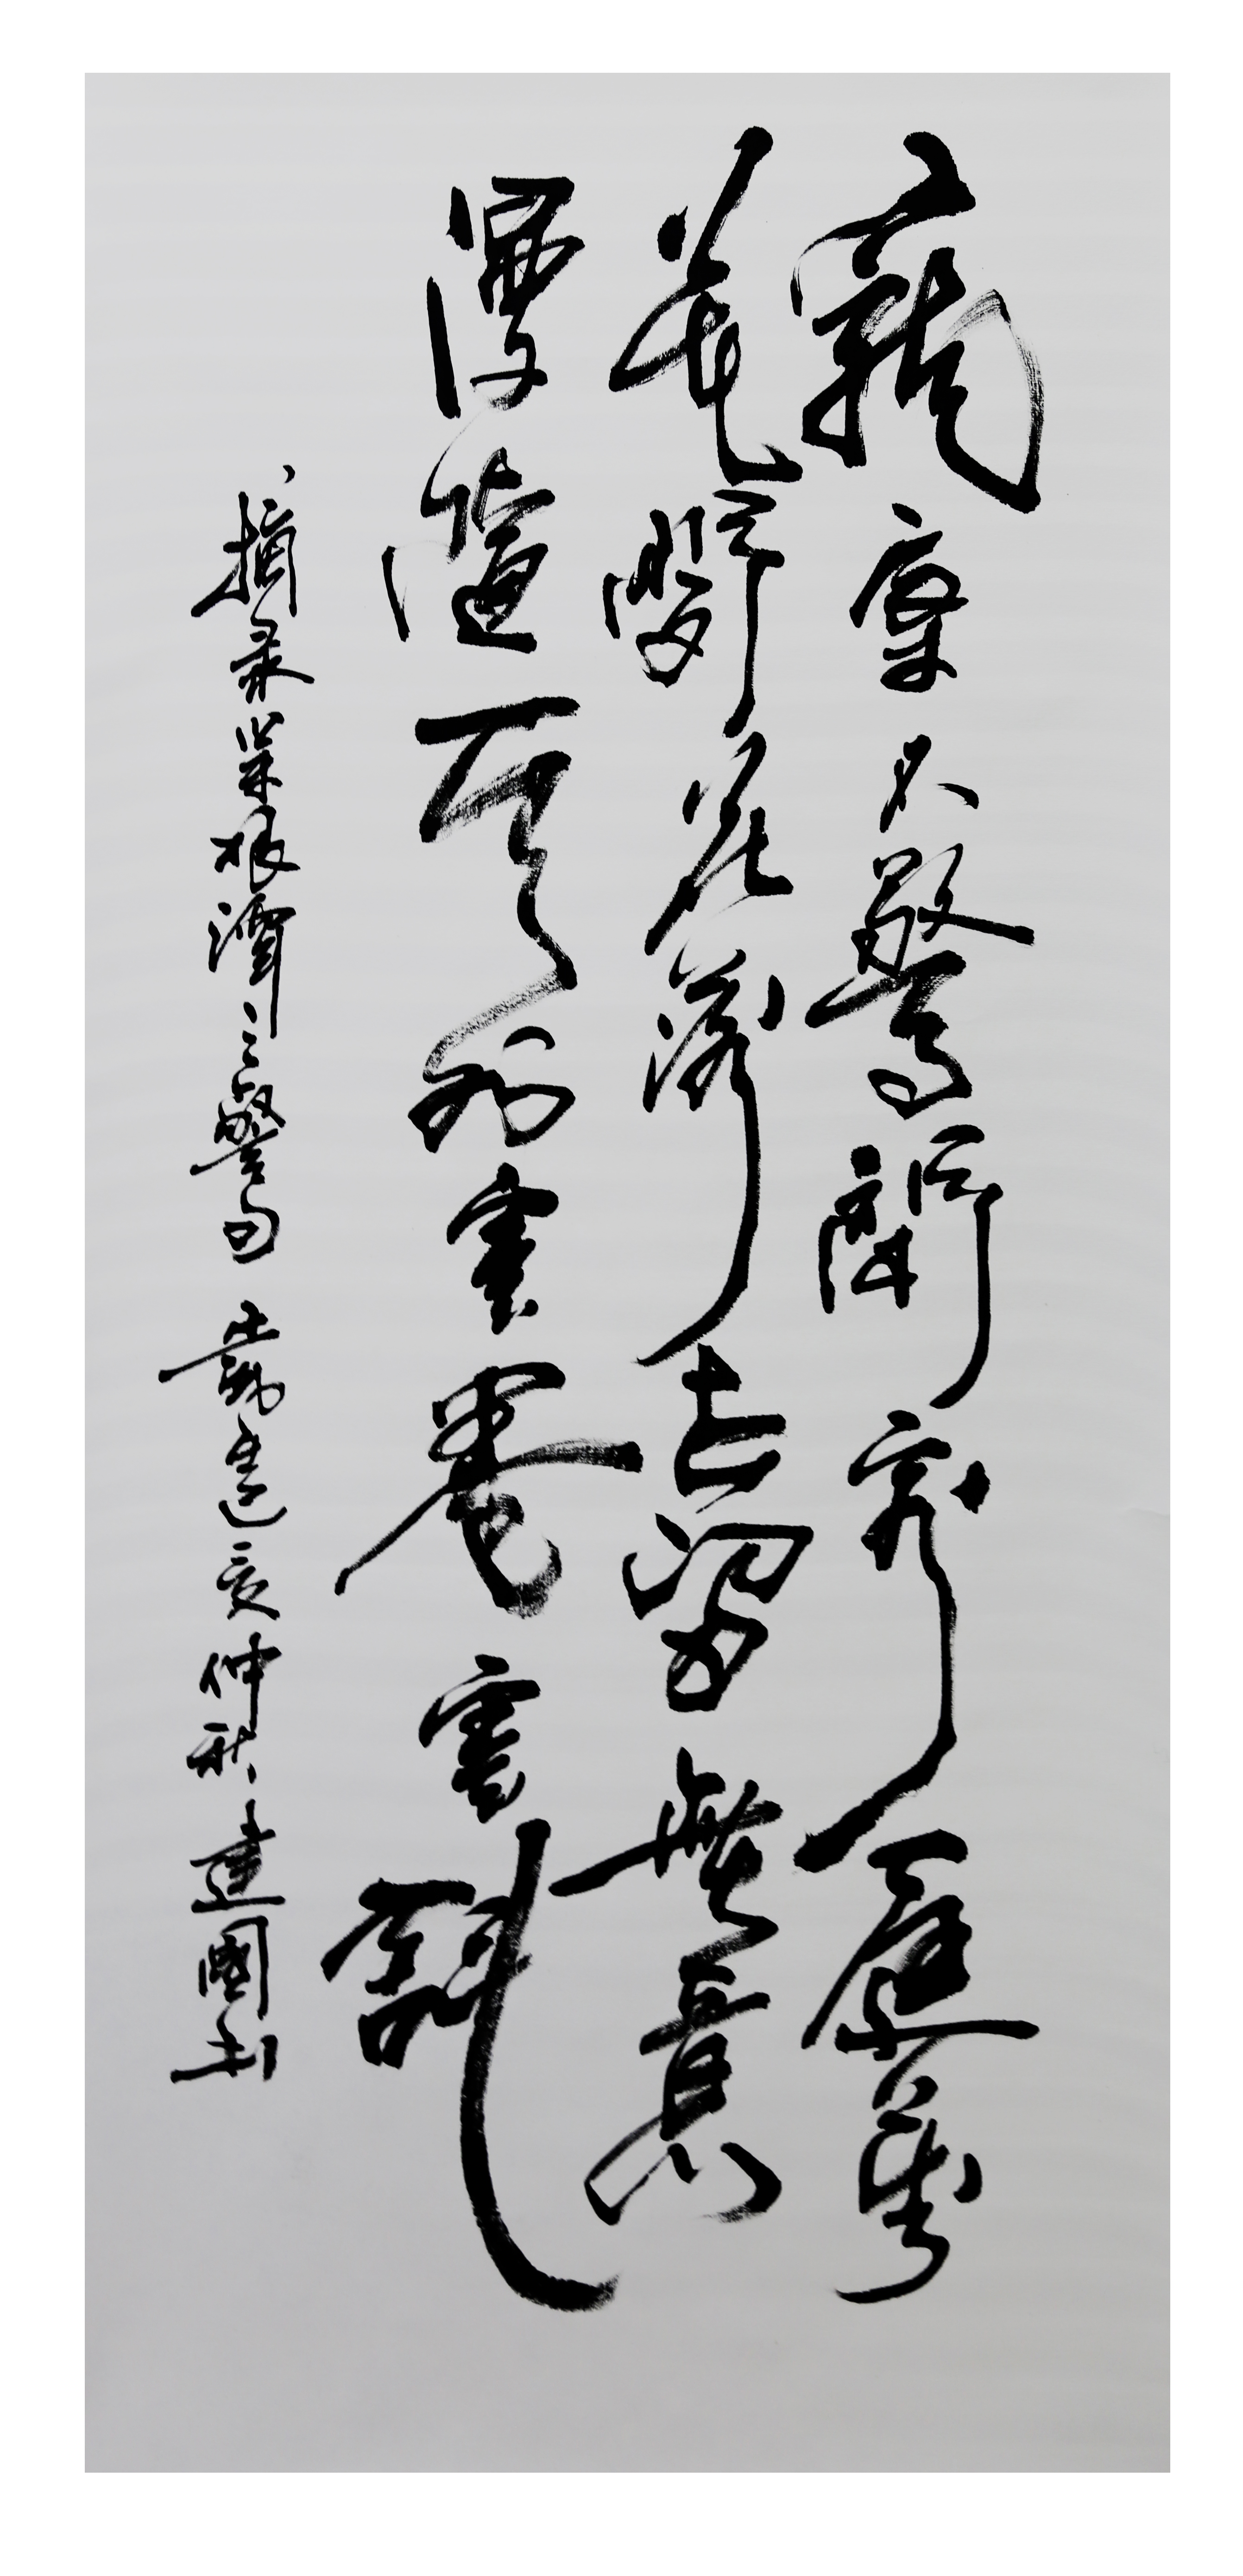 寵辱不驚閑看庭前
花開花落去留無意
漫隨天外雲卷雲舒
摘录菜根潭之警句 歲在己亥仲秋建國书